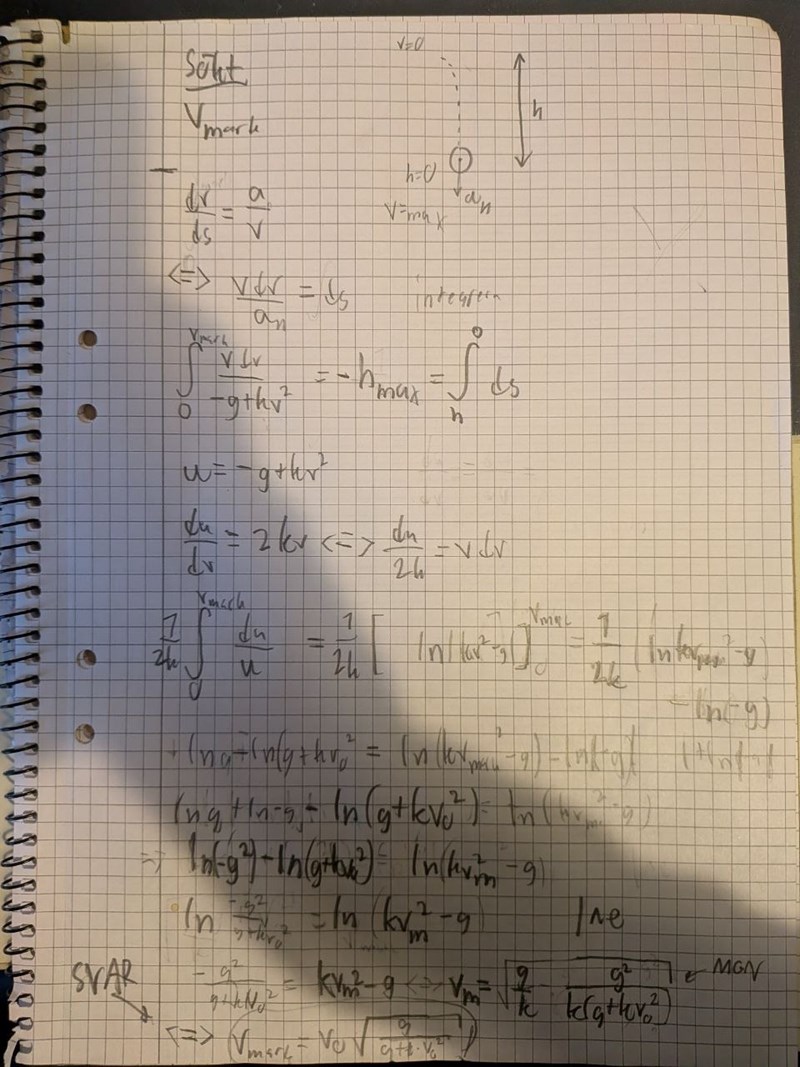 Sökt
V_mark
v=0
h
h=0
a_n
v=v_max
dv/ds = a/v
<=> v dv/a_n = ds
∫_0^{v_mark} v dv/(-g+kv²) = -h_max = ∫_h^0 ds
u = -g+kv²
du/dv = 2kv <=> du/2k = v dv
1/2k ∫_0^{v_mark} du/u = 1/2k [ ln|kv²-g| ]_0^{v_mar} = 1/2k (ln kv_mar²-g)
- ln(-g)
ln g - ln(g+kv_0²) = ln(kv_mark²-g) - ln(-g)
ln g + ln -g - ln(g+kv_0²) = ln(kv_m²-g)
=> ln(-g²) - ln(g+kv_0²) = ln(kv_m² - g)
ln -g²/(g+kv_0²) = ln(kv_m² - g) | ^e
SVAR -g²/(g+kv_0²) = kv_m²-g <=> v_m = √(g/k - g²/(k(g+kv_0²))) ← MGN
<=> v_mark = v_0 √(g/(g+k·v_0²))